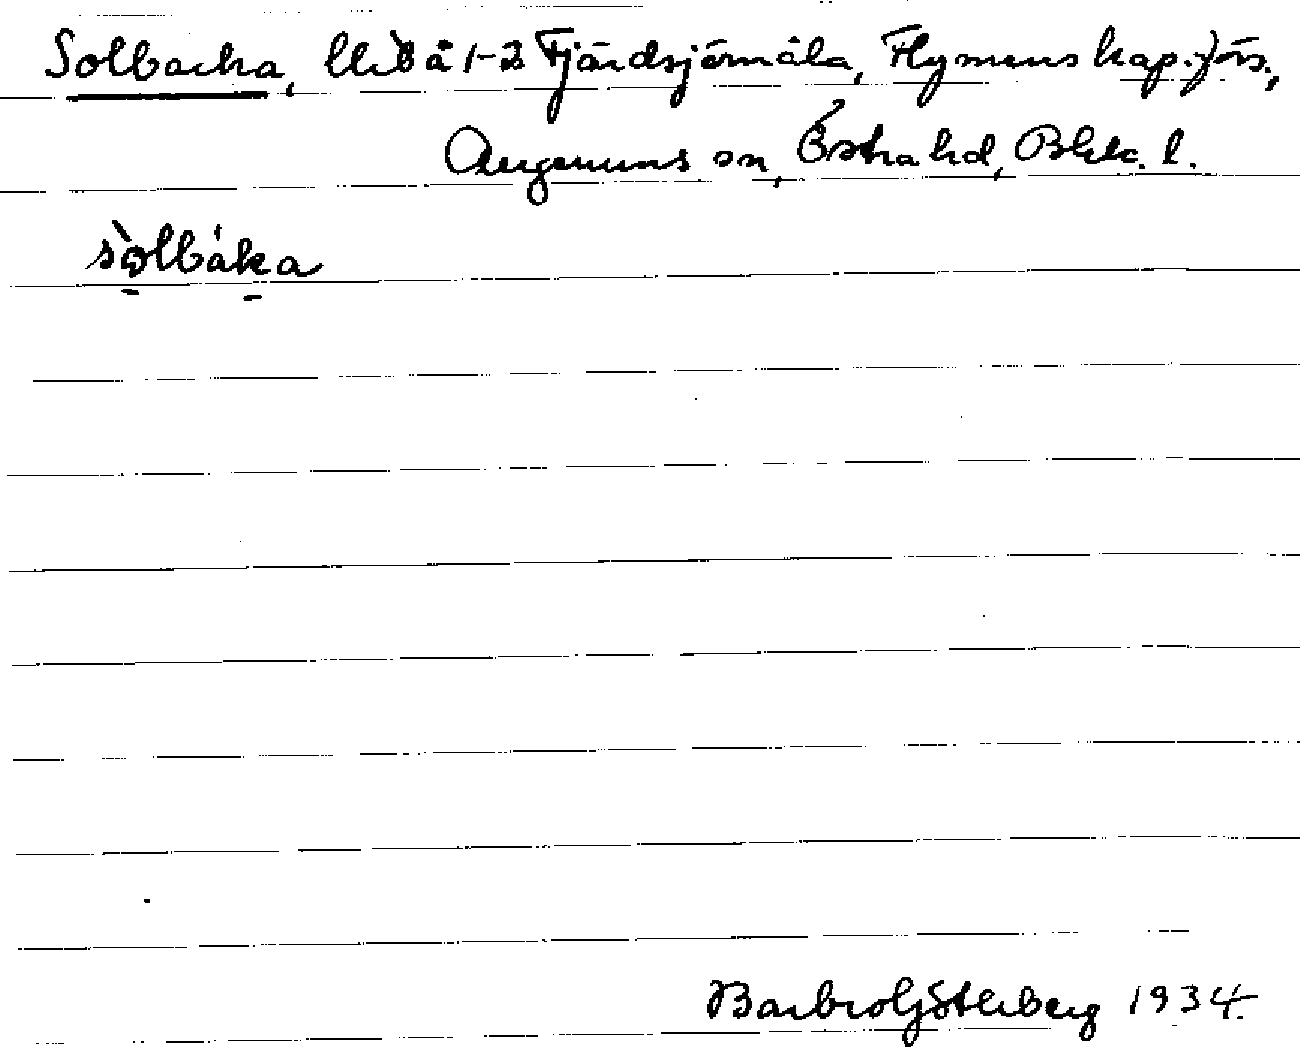 Solbacka, å 1-2 Fjärdsjömåla, Flymens kap.förs.,
Augerums sn, Östra hd, Blek. l.
sòlbáka
Barbro Götlberg 1934.